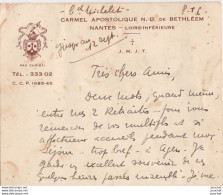 CARMEL APOSTOLIQUE N. D. DE BETHLÉEM
NANTES - LOIRE-INFÉRIEURE
J. M. J. T.
PAX CHRISTI
TÉL. 333-02
C. C. P. 1683-45
jusqu'au 2 sept.
Très chers Amis,
Deux mots, quand même
entre nos 2 Retraites, pour vous
remercier de vos multiples et si
affectueux accueils pendant mon
séjour trop bref à Agen. Je
garde un excellent souvenir de ces
quelques heures passées ensemble. Je me